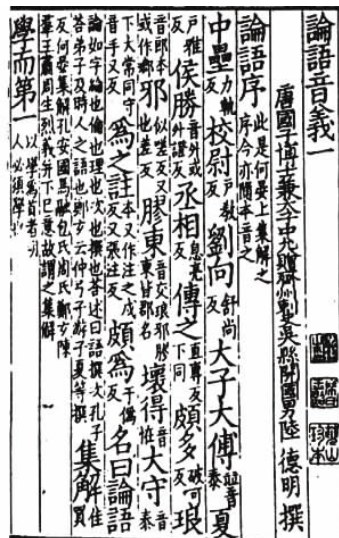 論語音義一
唐國子博士兼太子中允贈齊州刺史吳縣開國男陸德明撰
論語序此是何晏上集解之序今亦隨本音之
中壘力軌反校尉戶教反劉向舒尚反大子大傅並音泰夏
戶雅反侯勝音升或外證反丞相息亮反傳之直專反下同頗多破可反琅
音郎本或作瑯邪似嗟反又也差反膠東音交琅邪膠東皆郡名壞得音怪大守音泰
下大常同守音手又反為之註本又作注之戍反又張注反頗為于偽反名曰論語
論如字綸也倫也理也次也撰也荅述曰語撰次孔子荅弟子及時人之語也鄭玄云仲弓子游子夏等撰集解佳買
反何晏集解孔安國馬融包氏周氏鄭玄陳羣王肅周生烈義并下己意故謂之集解
學而第一以學為首者明人必須學也